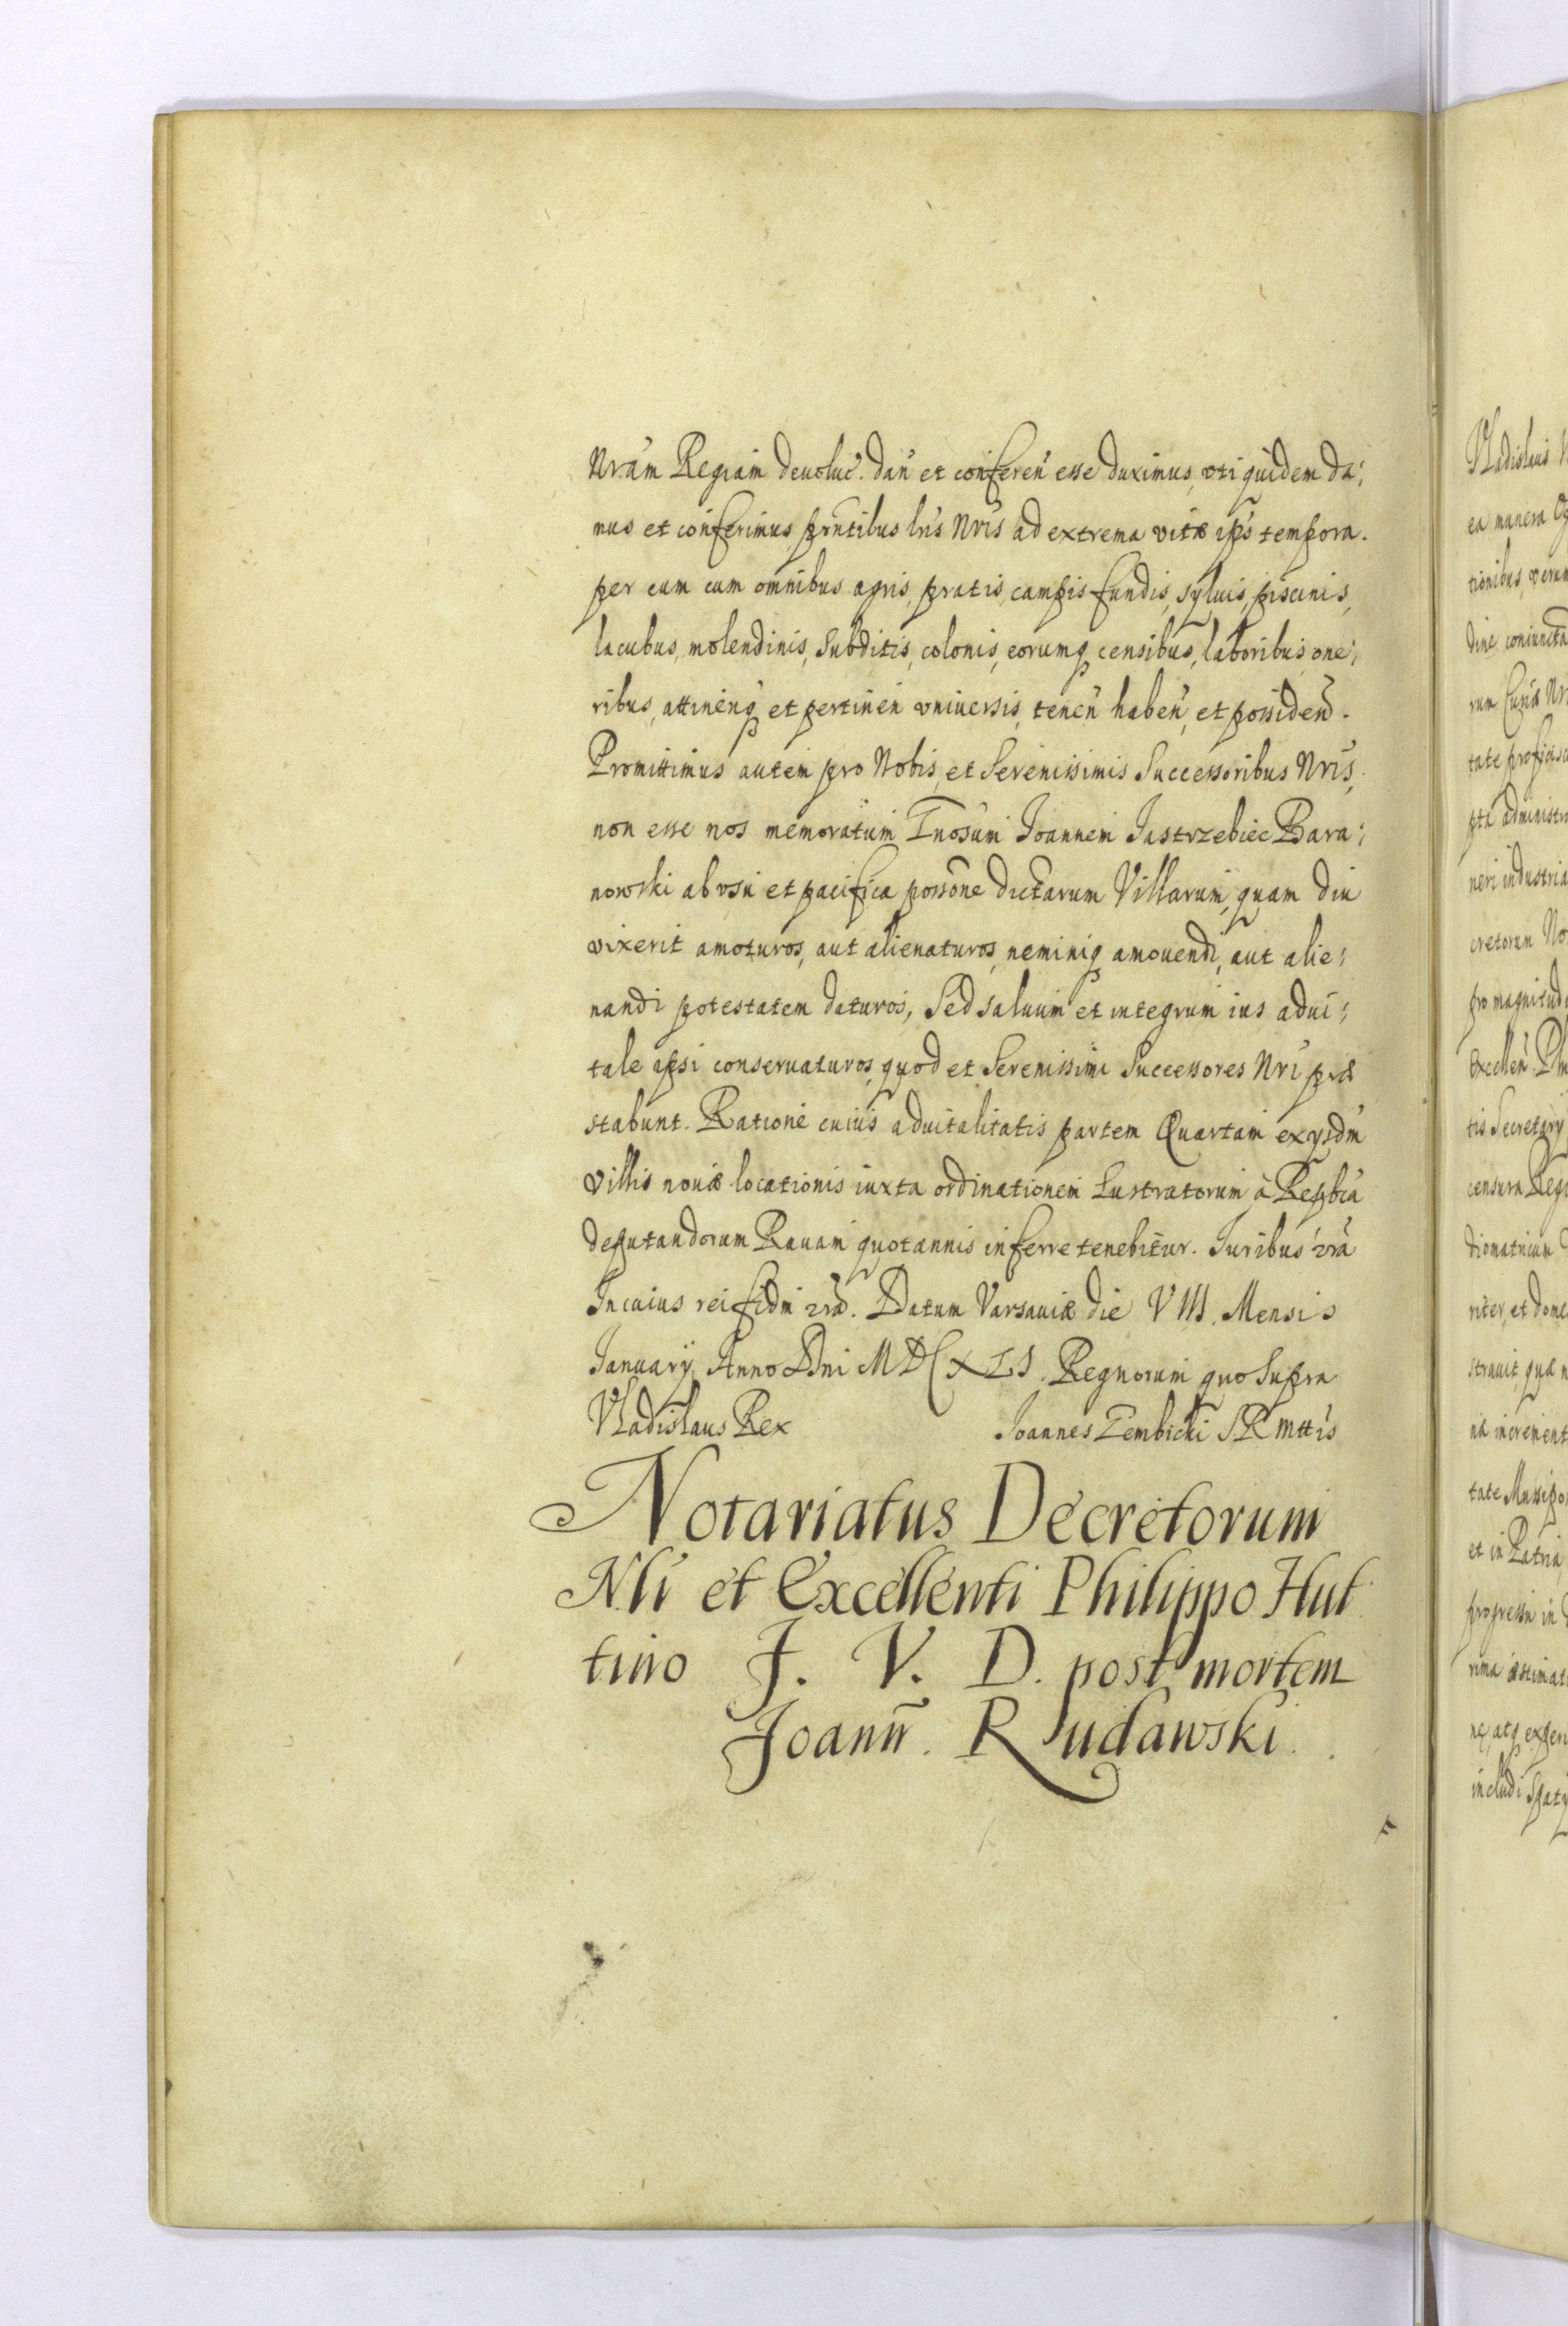 Nrãm Regiam deuoluc. dan̄ et conferen̄ esse duximus, vti quidem da:
mus et conferimus prn̄tibus lrīs Nrīs ad extrema vitæ ips̄ tempora.
per eum cum omnibus agris, pratis, campis fundis, syluis, piscinis,
lacubus, molendinis, subditis, colonis, eorumq censibus, laboribus, one:
ribus, attinenq et pertinen̄ vniuersis, tenen̄ haben̄, et possiden̄.
Promittimus autem pro Nobis, et Serenissimis Successoribus Nrīs,
non esse nos memoratum Gnosum Joannem Jastrzebiec Bara:
nowski ab vsu et pacifica possōne dictarum Villarum, quam diu
vixerit amoturos, aut alienaturos, neminiq amouendi, aut alie:
nandi potestatem daturos, Sed saluum et integrum ius adui:
tale ipsi conseruaturos, quod et Serenissimi Successores Nrī præ
stabunt. Ratione cuius aduitalitatis partem Quartam ex ysdm̄
villis nouæ locationis iuxta ordinationem Lustratorum à Repbca
deputandorum Rauam quotannis inferre tenebitur. Juribus
In cuius rei fidm̄ Datum Varsauiæ die VIII. Mensis
January, Anno Dni MDCXLI. Regnorum quo Supra
Vladislaus Rex Joannes Gembicki S R Mttis
Notariatus Decretorum
Nli et Excellenti Philippo Hut
tino J. V. D. post mortem
Joann̄. Rudawski.
Vladislaus
ea munera
tionibus
dine coniuncta
rum Curiæ
tate
pta administra
neri industria
cretorum
pro magnitud
Excellen̄
tis Secretary
censura Regi
riter, et dome
strauit, quæ
na increment
tate
et in Patria
progressu in
rima æstimat